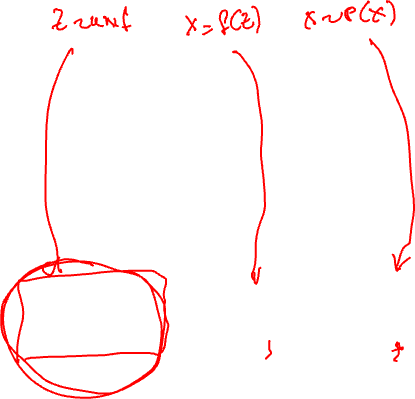 z ~ unif x = f(z) x ~ p(x)